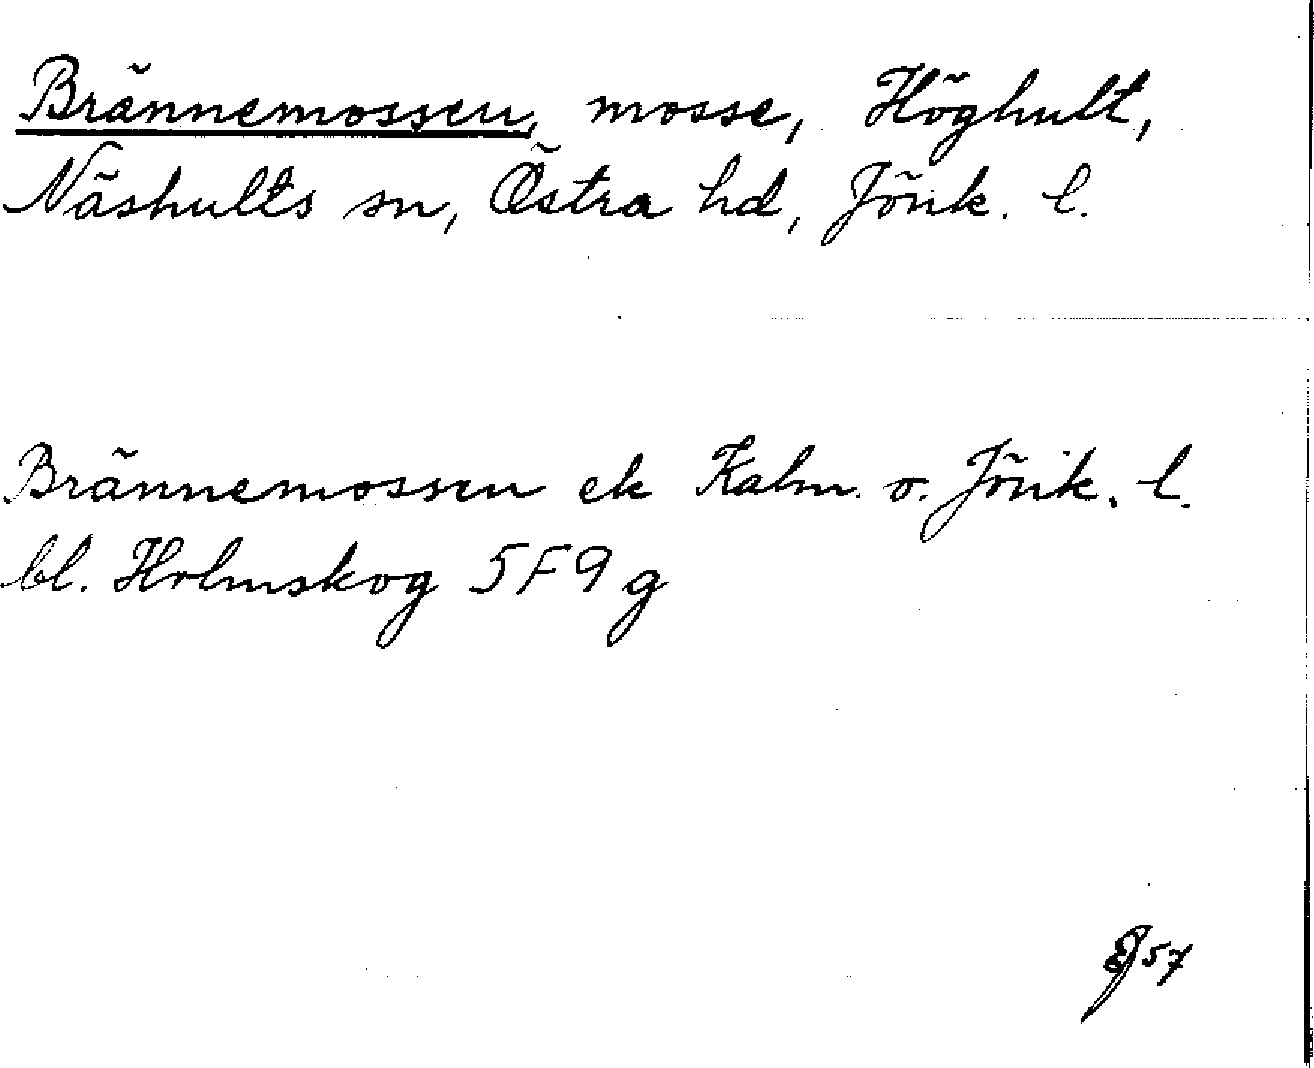 Brännemossen, mosse, Höghult,
Näshults sn, Östra hd, Jönk. l.
Brännemossen ek Kalm. o. Jönk. l.
bl. Holmskog 5F9g
EJ 57